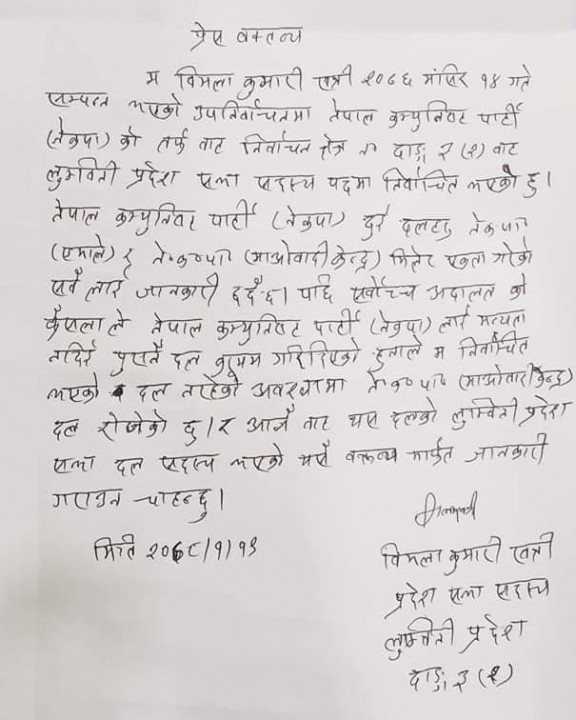 प्रेस वक्तव्य
म विमला कुमारी खत्री २०७६ मंसिर १४ गते
सम्पन्न भएको उपनिर्वाचनमा नेपाल कम्युनिष्ट पार्टी
(नेकपा) को तर्फ बाट निर्वाचन क्षेत्र नं दाङ ३ (२) बाट
लुम्विनी प्रदेश सभा सदस्य पदमा निर्वाचित भएको हु।
नेपाल कम्युनिष्ट पार्टी (नेकपा) दुई दलहरु नेकपा
(एमाले) र ने०क०पा० (माओवादी केन्द्र) मिलेर एकता गरेको
सबै लाई जानकारी हुदैछ। पछि सर्वोच्च अदालत को
फैसला ले नेपाल कम्युनिष्ट पार्टी (नेकपा) लाई मान्यता
नदिई पुरानै दल कायम गरिदिएको हुनाले म निर्वाचित
भएको दल नरहेको अवस्थामा ने०क०पा० (माओवादी केन्द्र)
दल रोजेको छु। र आजै बाट यस दलको लुम्विनी प्रदेश
सभा दल सदस्य भएको यसै वक्तव्य मार्फत जानकारी
गराउन चाहन्छु।
मिति २०७८/१/१३
विमला कुमारी खत्री
प्रदेश सभा सदस्य
लुम्विनी प्रदेश
दाङ ३ (२)